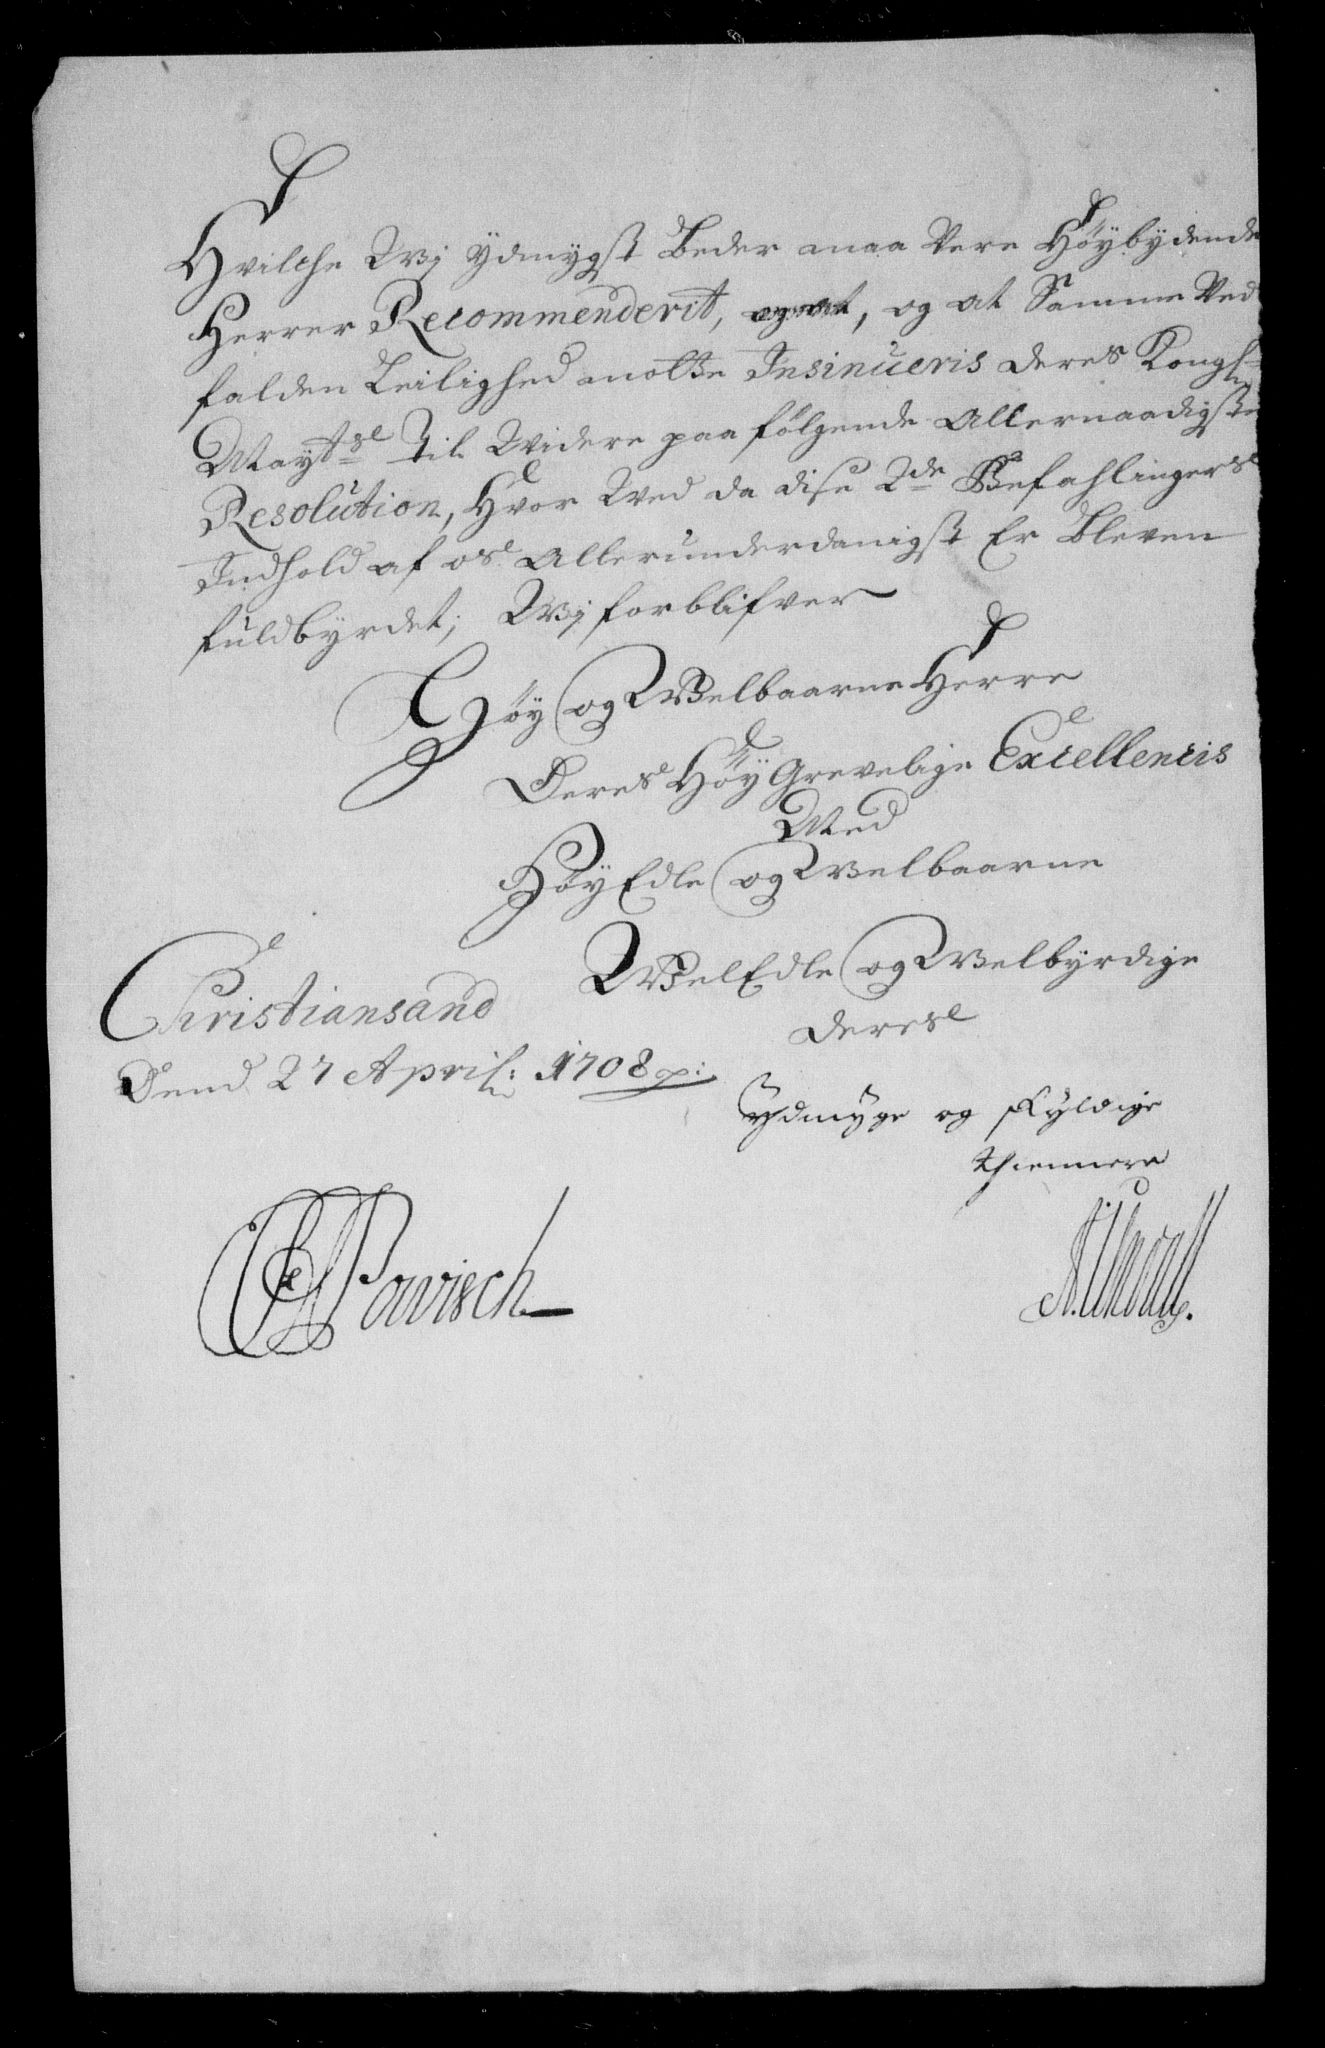 Hvilche Wj ydmygst Beder maa Vere Høybydende
Herrer Recommenderit, og at, og at Samme Ved
falden Leilighed motte Insinueris Deres Kongl:
Maytsz Til Widere paa følgende Allernaadigste
Resolution, Hvor Wed da disse 2de Befahlingers
Indhold af osz Allerunderdanigst Er Bleven
fuldbyrdet; Wj forblifver
Høy og Welbaarne Herre
Deres Høy Grevelige Excellencis
Med
Høy Edle og Welbaarne
Wel Edle og Welbyrdige
Deres
Christiansand
Dend 27 April: 1708 p:
Ydmyge og skyldige
thiennere
Powisch